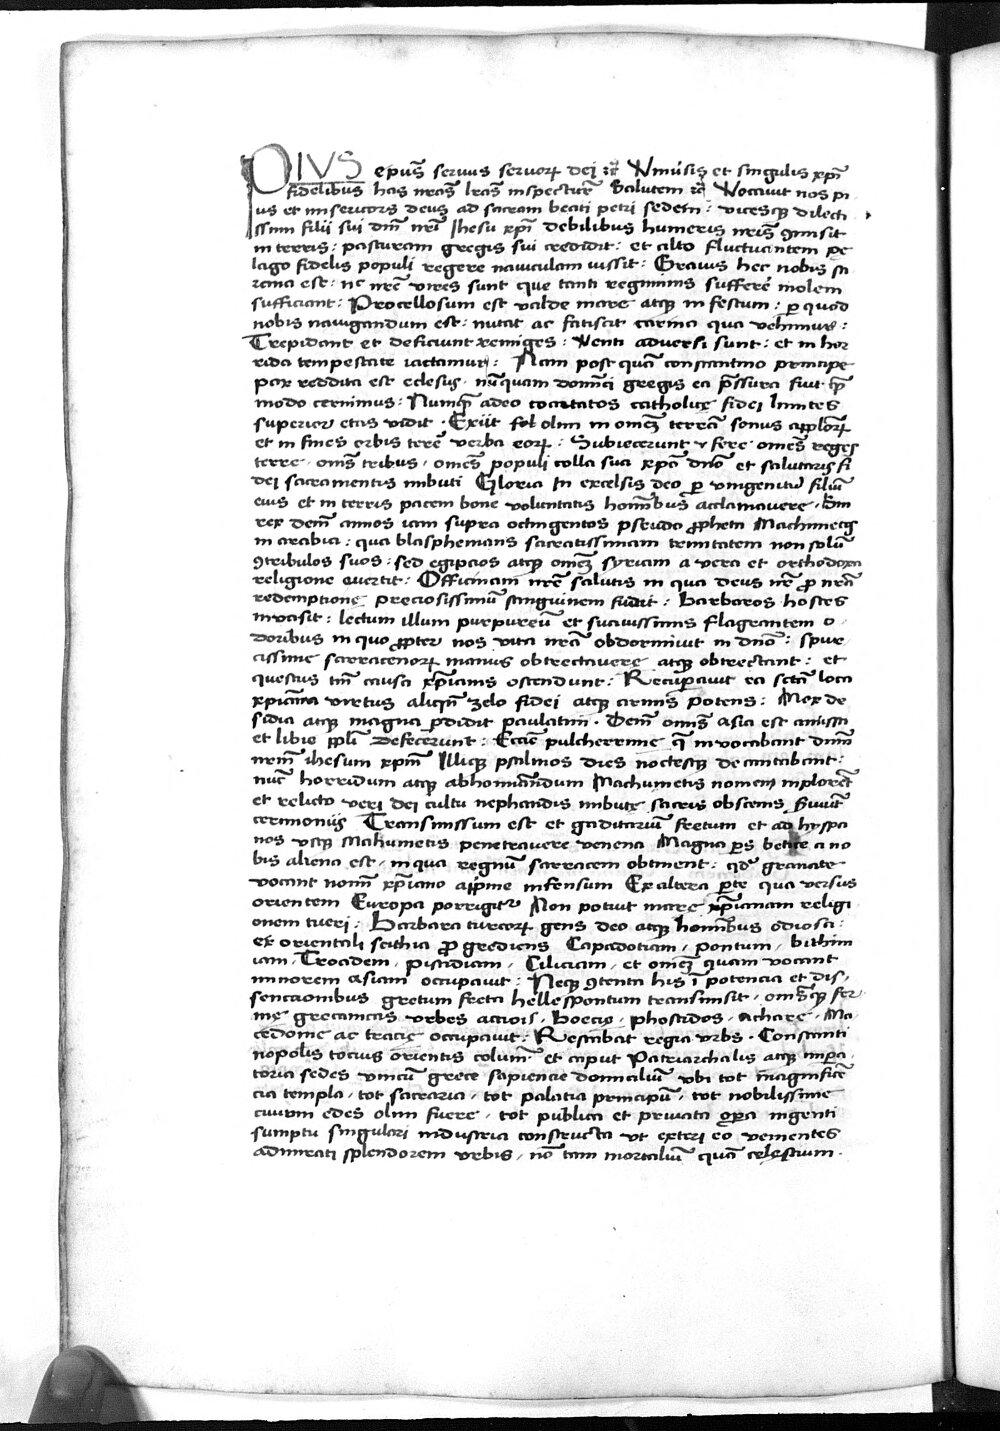 PIVS epūs servus servoꝝ dei ⁊c̄ Vniūsis et singulis xp̄i
fidelibus has nr̄as lr̄as inspecturis Salutem ⁊c̄ Vocavit nos pi
us et misericors deus ad sacram beati petri sedem : vicesqꝫ dilecti
ssimi filii sui dn̄i nr̄i Jhesu xp̄i debilibus humeris nr̄is ꝯmisit
in terris : pasturam gregis sui credidit : et alto fluctuantem pe
lago fidelis populi regere naviculam iussit : Gravis hec nobis sa
rcina est : nc̄ nr̄e vires sunt que tanti regiminis sufferre molem
sufficiant : Procellosum est valde mare atqꝫ infestum : ꝑ quod
nobis navigandum est : nutat ac fatiscit carina qua vehimur :
Trepidant et deficiunt remiges : Venti adversi sunt : et in hor
rida tempestate iactamur : Nam post quā constantino principe
pax reddita est eclesiis , nūquam dominici gregis ea p̄ssura fuit qm̄
modo cernimus : Numqꝫ adeo coartatos catholicę fidei limites
superior etas vidit . Exiit olim in omēꝫ terrā sonus ap̄loꝝ
et in fines orbis terrē verba eoꝝ : Subiecerunt fere omēs reges
terre , oms̄ tribus , omēs populi colla sua xp̄o dn̄o et salutaris fi
dei sacramentis imbuti Gloria In excelsis deo ꝑ vnigenitū filiū
eius et in terris pacem bone voluntatis hominibus acclamavere .
demū annos iam supra octingentos pseudo ꝓpheta Machumetꝰ
in arabia : qua blasphemans sacratissimam trinitatem non solū
ꝯtribulos suos : sed egipcios atqꝫ omēꝫ syriam a vera et orthodoxa
religione evertit : Officinam nr̄e salutis in qua deus nr̄ ꝓ nr̄a
redemptione preciosissimū sanguinem fudit : Barbaros hostes
invasit : lectum illum purpureū et suavissimis flagrantem o
doribus in quo ꝓpter nos vita nr̄a obdormivit in dn̄o : spur
cissime sarracenoꝝ manus obtrectavere atqꝫ obtrectant : et
questus tm̄ causa xp̄ianis ostendunt : Recuꝑavit ea sctā loca
xp̄iana virtus aliqn̄ zelo fidei atqꝫ armis potens : Mox de
sidia atqꝫ magna ꝑdidit paulatim . Demū omis̄ asia est amissa
et libie ppl̄i defecerunt : Ecclīe pulcherrime q̄ invocabant dn̄m
nrm̄ ihesum xp̄m Illiqꝫ psalmos dies noctesqꝫ decantabant :
nūc horridum atqꝫ abhominandum Machumetis nomen inplorēt
et relicto veri dei cultu nephandis imbutę sacris obscenis
cerimoniis Transmissum est et gaditanū fretum et ad hyspa
nos vsqꝫ Mahumetis penetravere venena Magna ꝑs betice a no
bis aliena est , in qua regnū sarraceni obtinent : qd̄ granate
vocant nomī xp̄iano apprime infensum Ex altera ꝑte qua versus
orientem Europa porrigitur Non potuit mare xp̄ianam religi
onem tueri : Barbara turcoꝝ gens deo atqꝫ hominibus odiosa :
ex orientali scithia ꝓgrediens Capadotiam , pontum , bithini
iam , Troadem , pisidiam , Ciliciam , et omēꝫ quam vocant
minorem asiam occupavit : Neqꝫ ꝯtenta his ī potencia et dis ,
sencionibus gretum freta hellespontum transmisit , omīsqꝫ fer
me grecanicas vrbes actiois , boecię , phostidos , achaię , Ma
cedonie ac tracię occupavit : Restabat regia vrbs . Constanti
nopolis tocius orientis columē et caput Patriarchalis atqꝫ impa ,
toria sedes vnicū grece sapiencie domicilium vbi tot magnificē
cia templa , tot sacraria , tot palatia principū , tot nobilissime
civium edes olim fuere , tot publica et privata oꝑa ingenti
sumptu singulari industria constructa vt exteri eo venientes
admirati splendorem vrbis , nō tam mortaliū quā celestium .